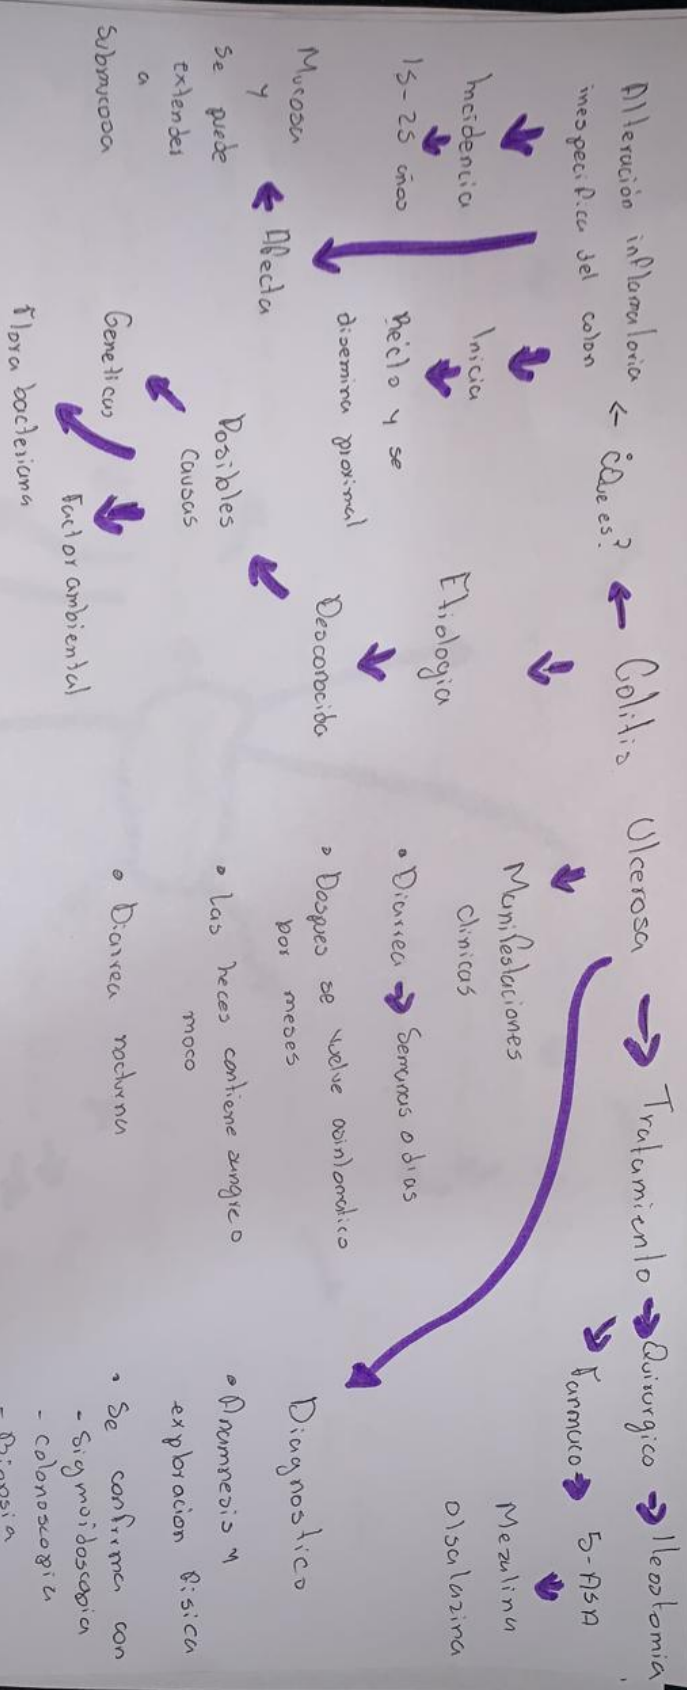 Colitis Ulcerosa
¿Que es?
Alteración inflamatoria
inespecifica del colon
Incidencia
15-25 años
Inicia
Recto y se
disemina proximal
Afecta
Mucosa
y
Se puede
extender
a
Submucosa
Etiologia
Desconocida
Posibles
causas
Geneticas
Factor ambiental
Flora bacteriana
Manifestaciones
clinicas
• Diarrea → Semanas o dias
• Despues se vuelve asintomatico
por meses
• Las heces contiene sangre o
moco
• Diarrea nocturna
Tratamiento → Quirurgico → Ileostomia
Farmaco → 5-ASA
Mezalina
Olsalazina
Diagnostico
• Anamnesis y
exploracion fisica
• Se confirma con
- Sigmoidoscopia
- colonoscopia
- Biopsia